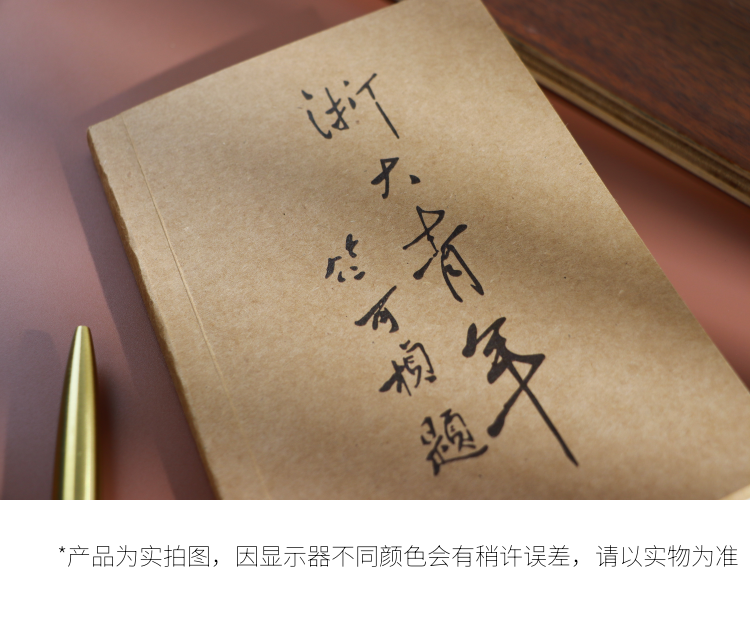 浙大青年
竺可桢题
*产品为实拍图，因显示器不同颜色会有稍许误差，请以实物为准